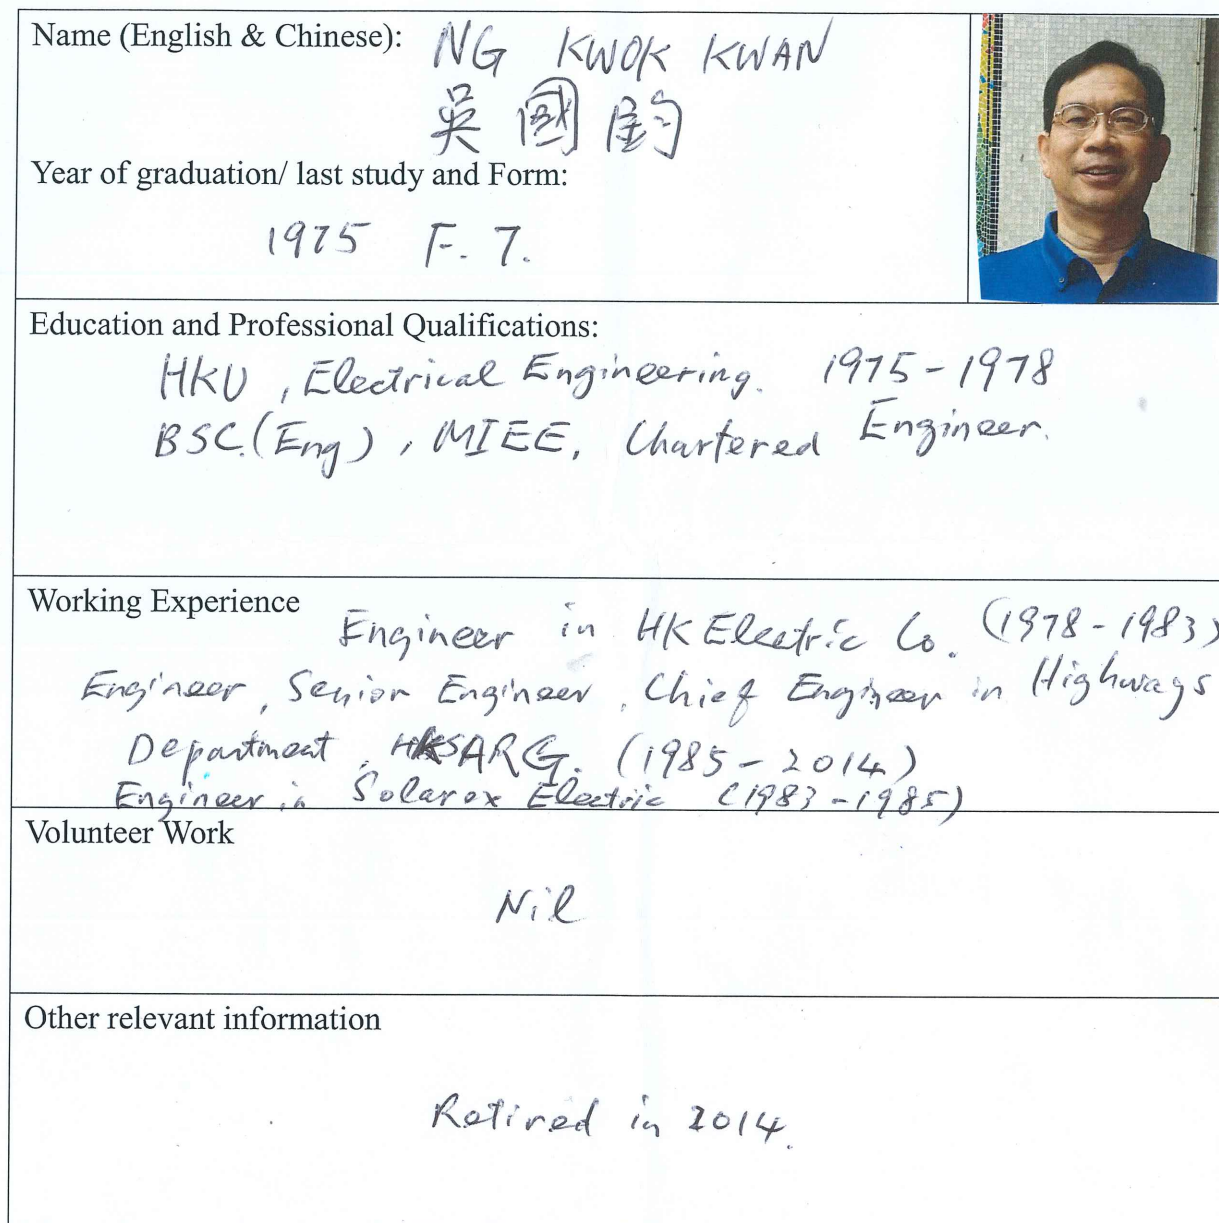 Name (English & Chinese): NG KWOK KWAN
吳國鈞
Year of graduation/ last study and Form:
1975 F. 7.
Education and Professional Qualifications:
HKU, Electrical Engineering. 1975-1978
BSC.(Eng), MIEE, Chartered Engineer.
Working Experience
Engineer in HK Electric Co. (1978-1983)
Engineer, Senior Engineer, Chief Engineer in Highways
Department, HKSARG. (1985-2014)
Engineer in Solarex Electric (1983-1985)
Volunteer Work
Nil
Other relevant information
Retired in 2014.